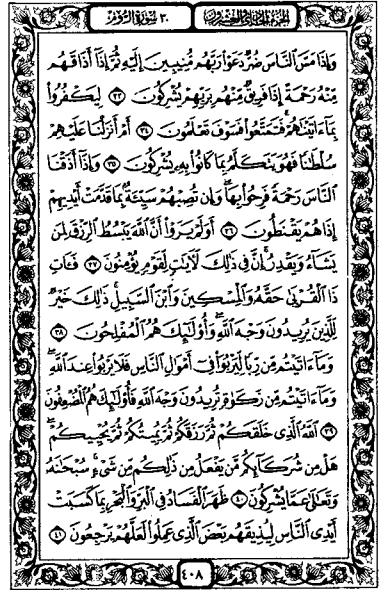 الجزء الحادي والعشرون ٣٠ سورة الروم
وَإِذَا مَسَّ ٱلنَّاسَ ضُرٌّ دَعَوۡاْ رَبَّهُم مُّنِيبِينَ إِلَيۡهِ ثُمَّ إِذَآ أَذَاقَهُم
مِّنۡهُ رَحۡمَةً إِذَا فَرِيقٞ مِّنۡهُم بِرَبِّهِمۡ يُشۡرِكُونَ ٣٣ لِيَكۡفُرُواْ
بِمَآ ءَاتَيۡنَٰهُمۡۚ فَتَمَتَّعُواْ فَسَوۡفَ تَعۡلَمُونَ ٣٤ أَمۡ أَنزَلۡنَا عَلَيۡهِمۡ
سُلۡطَٰنٗا فَهُوَ يَتَكَلَّمُ بِمَا كَانُواْ بِهِۦ يُشۡرِكُونَ ٣٥ وَإِذَآ أَذَقۡنَا
ٱلنَّاسَ رَحۡمَةٗ فَرِحُواْ بِهَاۖ وَإِن تُصِبۡهُمۡ سَيِّئَةُۢ بِمَا قَدَّمَتۡ أَيۡدِيهِمۡ
إِذَا هُمۡ يَقۡنَطُونَ ٣٦ أَوَلَمۡ يَرَوۡاْ أَنَّ ٱللَّهَ يَبۡسُطُ ٱلرِّزۡقَ لِمَن
يَشَآءُ وَيَقۡدِرُۚ إِنَّ فِي ذَٰلِكَ لَأٓيَٰتٖ لِّقَوۡمٖ يُؤۡمِنُونَ ٣٧ فَـَٔاتِ
ذَا ٱلۡقُرۡبَىٰ حَقَّهُۥ وَٱلۡمِسۡكِينَ وَٱبۡنَ ٱلسَّبِيلِۚ ذَٰلِكَ خَيۡرٞ
لِّلَّذِينَ يُرِيدُونَ وَجۡهَ ٱللَّهِۖ وَأُوْلَٰٓئِكَ هُمُ ٱلۡمُفۡلِحُونَ ٣٨
وَمَآ ءَاتَيۡتُم مِّن رِّبٗا لِّيَرۡبُوَاْ فِيٓ أَمۡوَٰلِ ٱلنَّاسِ فَلَا يَرۡبُواْ عِندَ ٱللَّهِۖ
وَمَآ ءَاتَيۡتُم مِّن زَكَوٰةٖ تُرِيدُونَ وَجۡهَ ٱللَّهِ فَأُوْلَٰٓئِكَ هُمُ ٱلۡمُضۡعِفُونَ
٣٩ ٱللَّهُ ٱلَّذِي خَلَقَكُمۡ ثُمَّ رَزَقَكُمۡ ثُمَّ يُمِيتُكُمۡ ثُمَّ يُحۡيِيكُمۡۖ
هَلۡ مِن شُرَكَآئِكُم مَّن يَفۡعَلُ مِن ذَٰلِكُم مِّن شَيۡءٖۚ سُبۡحَٰنَهُۥ
وَتَعَٰلَىٰ عَمَّا يُشۡرِكُونَ ٤٠ ظَهَرَ ٱلۡفَسَادُ فِي ٱلۡبَرِّ وَٱلۡبَحۡرِ بِمَا كَسَبَتۡ
أَيۡدِي ٱلنَّاسِ لِيُذِيقَهُم بَعۡضَ ٱلَّذِي عَمِلُواْ لَعَلَّهُمۡ يَرۡجِعُونَ ٤١
٤٠٨